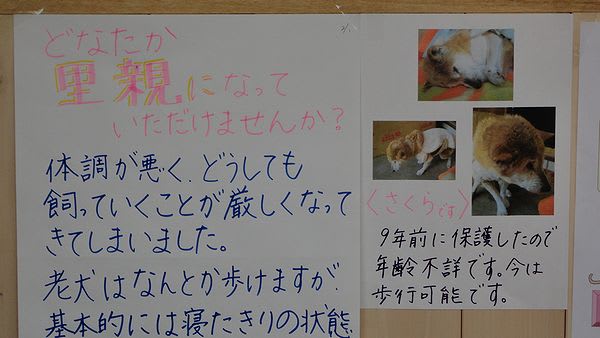 どなたか
里親になって
いただけませんか?
体調が悪く、どうしても
飼っていくことが厳しくなって
きてしまいました。
老犬はなんとか歩けますが、
基本的には寝たきりの状態
〈さくらです〉
9年前に保護したので
年齢不詳です。今は
歩行可能です。